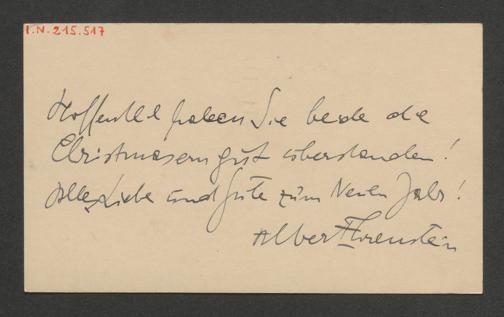 I.N. 215.517
Hoffentl haben Sie beide die
gut überstanden!
Alles Liebe und Gute zum Neuen Jahr!
Albert Ehrenstein